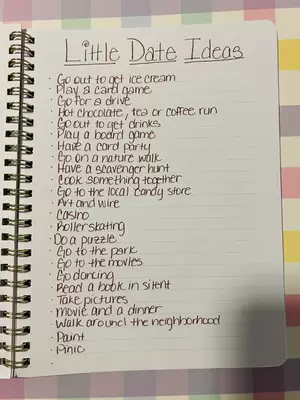 Little Date Ideas
· Go out to get ice cream
· Play a card game
· Go for a drive
· Hot chocolate, tea or coffee run
· Go out to get drinks
· Play a board game
· Have a card party
· Go on a nature walk
· Have a scavenger hunt
· Cook something together
· Go to the local candy store
· Art and wire
· Casino
· Roller skating
· Do a puzzle
· Go to the park
· Go to the movies
· Go dancing
· Read a book in silent
· Take pictures
· Movie and a dinner
· Walk around the neighborhood
· Paint
· Pinic
·